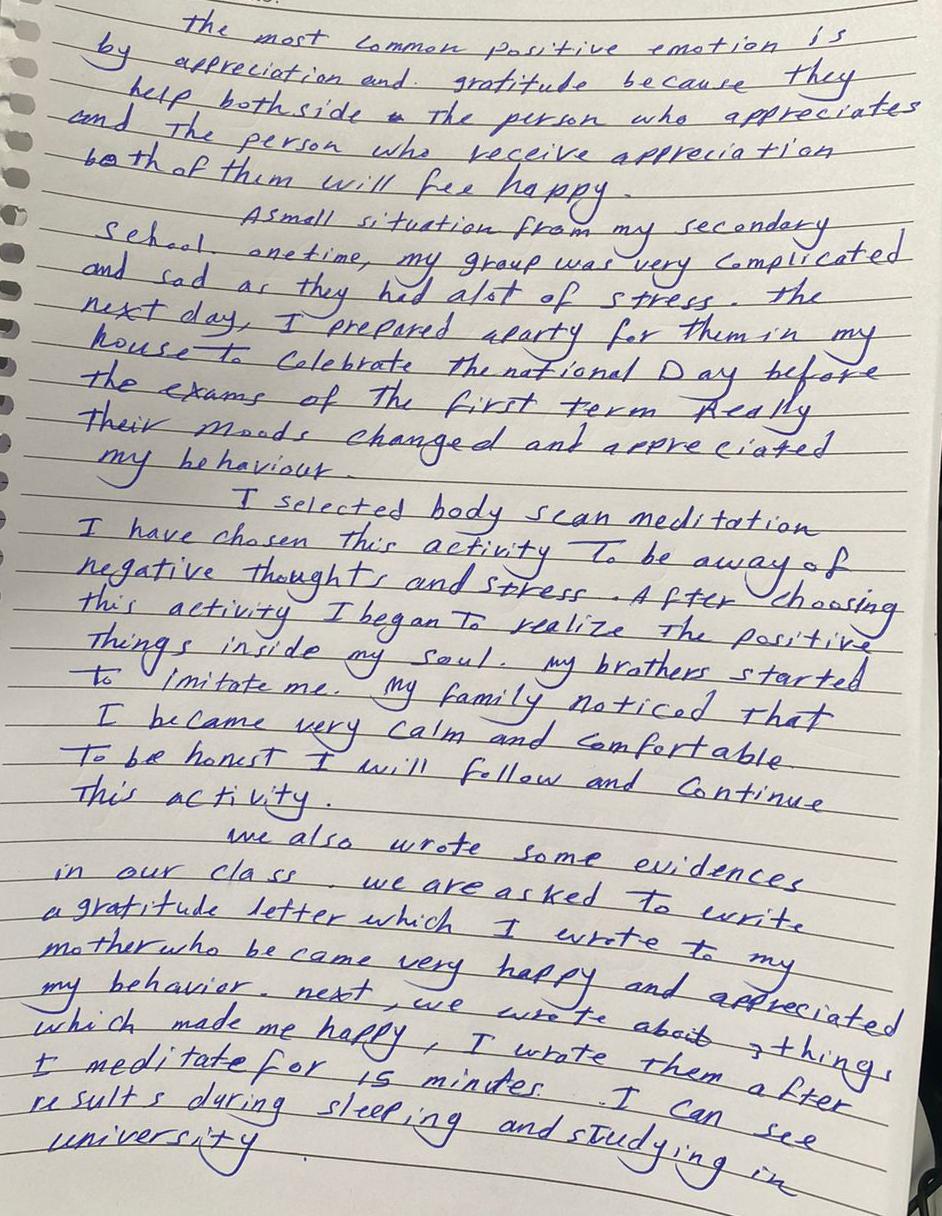 the most common positive emotion is
by appreciation and. gratitude because they
help both side The person who appreciates
and The person who receive appreciation
both of them will fee happy.
A small situation from my secondary
school. one time, my group was very complicated
and sad as they had alot of stress. the
next day, I prepared aparty for them in my
house To celebrate the national Day before
the exams of the first term Really
Their moods changed and appreciated
my behaviour.
I selected body scan meditation
I have chosen this activity To be away of
negative thoughts and stress. After choosing
this activity I began To realize the positive
Things inside my soul. My brothers started
To imitate me. My family noticed that
I became very calm and comfortable.
To be honest I will follow and continue
This activity.
we also wrote some evidences
in our class. we are asked To write
a gratitude letter which I wrote to my
mother who became very happy and appreciated
my behavior. next, we wrote about 3 things
which made me happy, I wrote them after
I meditate for 15 minutes. I can see
results during sleeping and studying in
university.